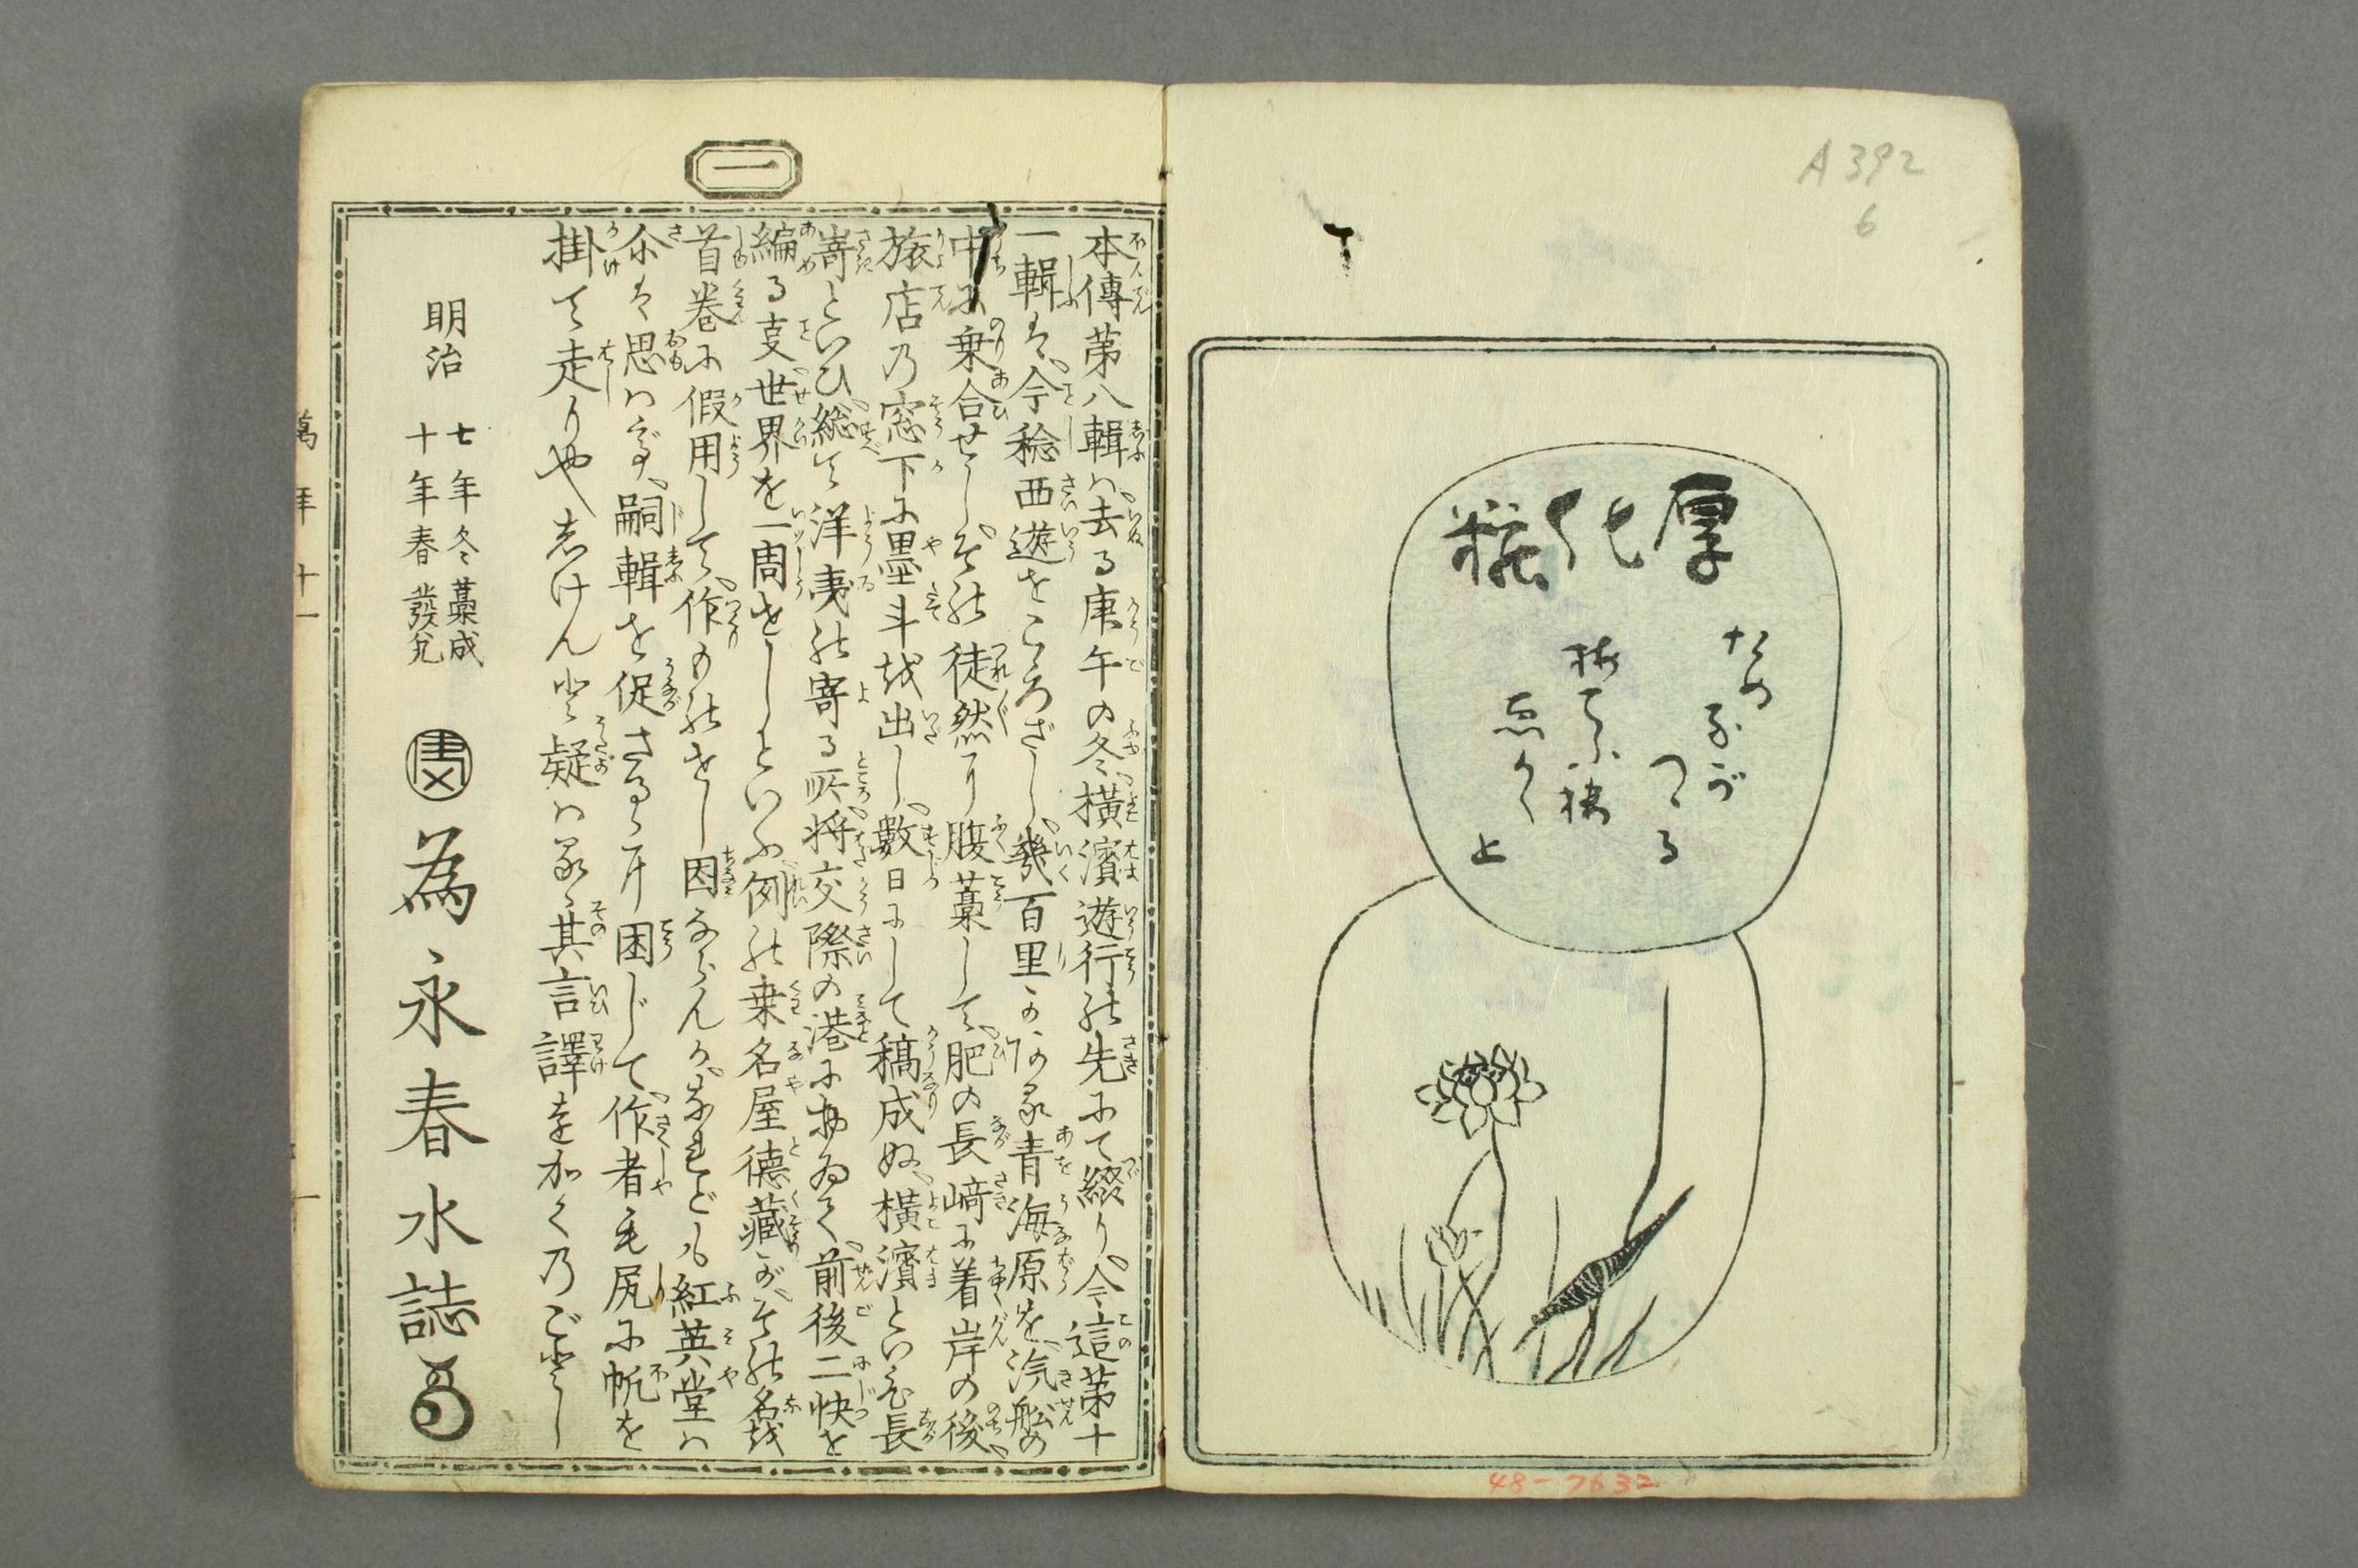 A392
6
厚化粧
48-7632
一
本傳第八輯ハ去る庚午の冬、橫濱遊行の先にて綴り、今這第十
一輯は、今稔西遊をこゝろざし、幾百里
青海原を、汽舩の
中に乗合せしが、その徒然に腹藁して、肥の長﨑に着岸の後、
旅店の窓下に墨斗を出し、數日にして稿成ぬ、橫濱といひ長
嵜といひ、総て洋夷の寄る所、将交際の港に
前後二快を
編る支、世界を一周せしといふ、例の桒名屋德藏が、その名を
首巻に假用して、作りものせし因ならんか、なれども紅英堂ハ
尒は思ハず、嗣輯を促さるゝに困じて、作者毛尻に帆を
掛て走りやしけんと疑ハるゝ、其言譯を加くのごとし
明治
七年冬藁成
十年春發兌
為永春水誌
萬年
十一
一